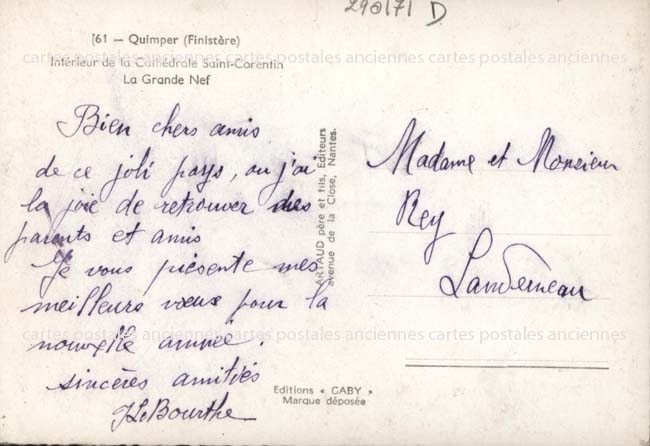 290171 D
161 — Quimper (Finistère)
Intérieur de la Cathédrale Saint-Corentin
La Grande Nef
cartes postales anciennes cartes postales anciennes cartes postales anciennes
Bien chers amis
de ce joli pays, ou j'ai
la joie de retrouver des
parents et amis
Je vous présente mes
meilleurs vœux pour la
nouvelle année.
sincères amitiés
JLeBourthe
ARTAUD père et fils, Editeurs
avenue de la Close, Nantes.
Madame et Monsieur
Rey
Landerneau
cartes postales anciennes cartes postales anciennes cartes postales anciennes
Editions « GABY »
Marque déposée